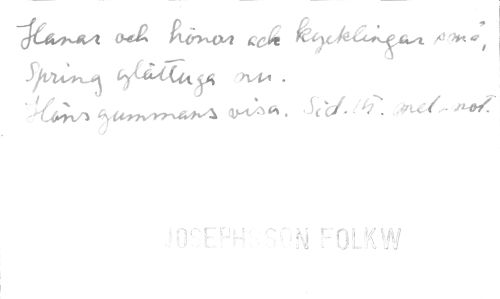 Hanar och hönor ack kycklingar små,
Spring glättuga nu.
Hönsgummans visa. Sid. 15. mel-not.
JOSEPHSSON FOLKW